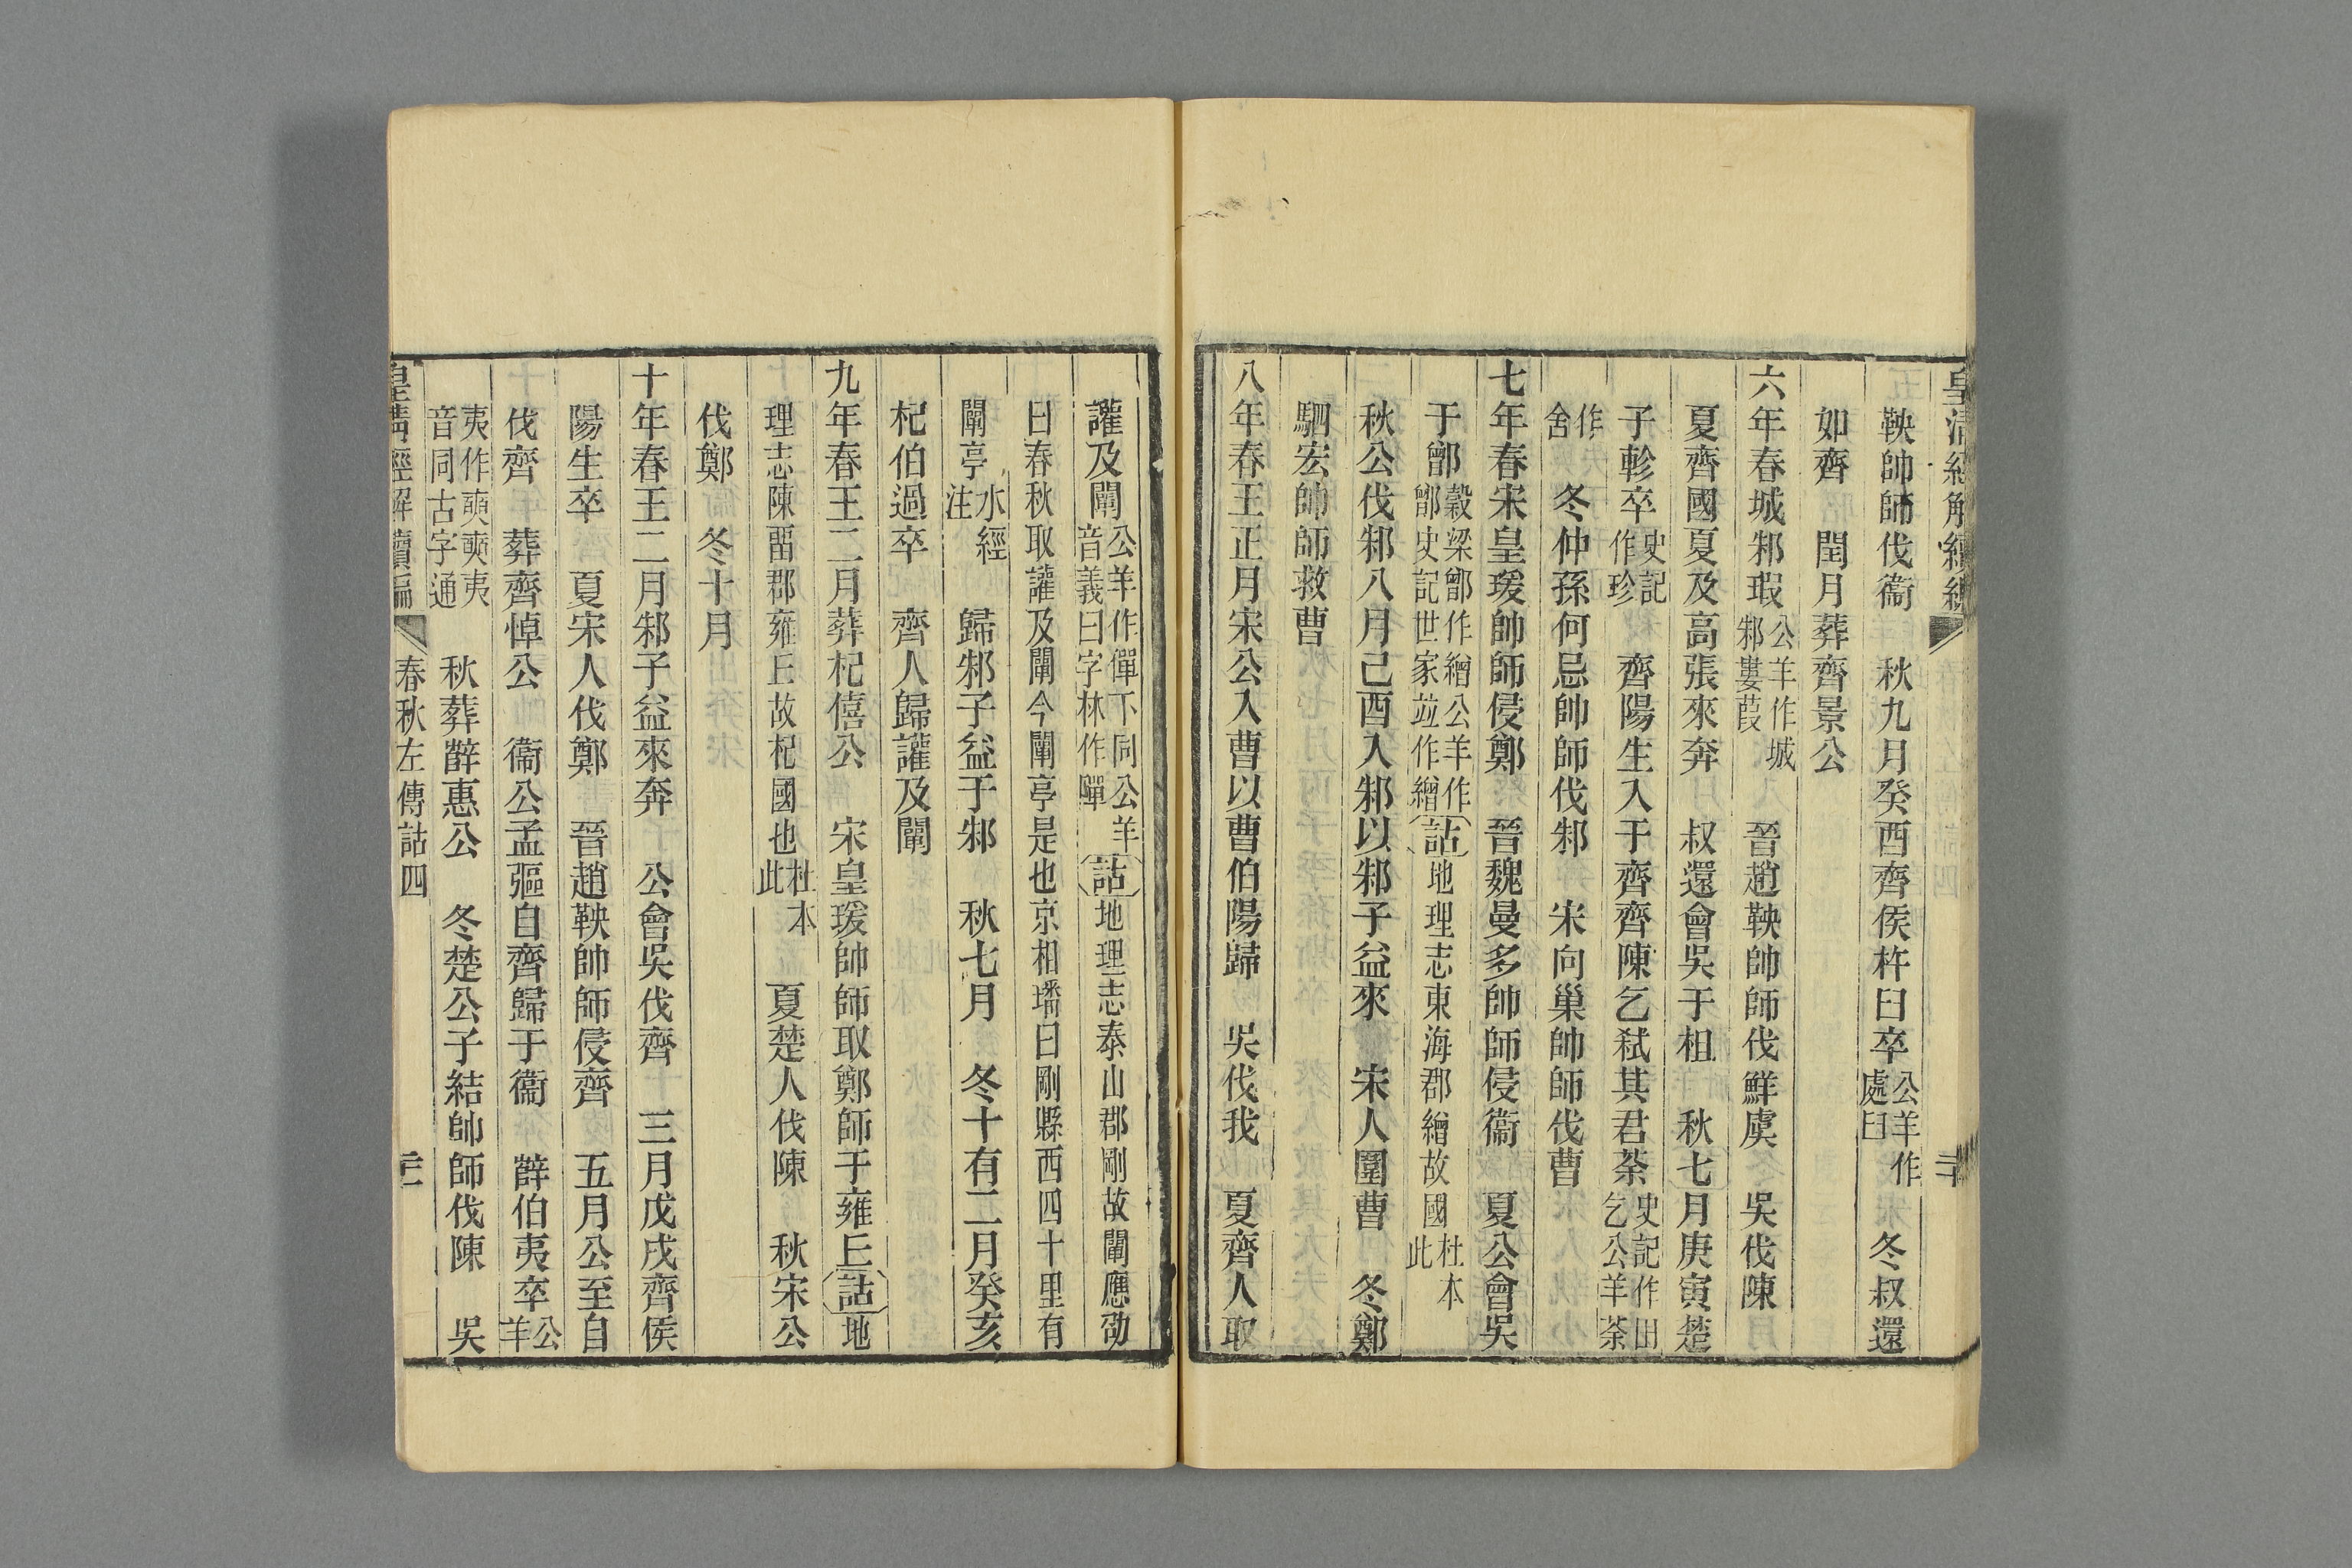 皇清經解續編
鞅帥師伐衞　秋九月癸酉齊侯杵臼卒公羊作處臼　冬叔還
如齊　閏月葬齊景公
六年春城邾瑕公羊作城邾婁葭　晉趙鞅帥師伐鮮虞　吳伐陳
夏齊國夏及高張來奔　叔還會吳于柤　秋七月庚寅楚
子軫卒史記作珍　齊陽生入于齊齊陳乞弒其君荼史記作田乞公羊荼
作舍　冬仲孫何忌帥師伐邾　宋向巢帥師伐曹
七年春宋皇瑗帥師侵鄭　晉魏曼多帥師侵衞　夏公會吳
于鄫穀梁鄫作繒公羊作鄫史記世家竝作繒詁地理志東海郡繒故國杜本此
秋公伐邾八月己酉入邾以邾子益來　宋人圍曹　冬鄭
駟宏帥師救曹
八年春王正月宋公入曹以曹伯陽歸　吳伐我　夏齊人取
讙及闡公羊作僤下同公羊音義曰字林作嘽詁地理志泰山郡剛故闡應劭
曰春秋取讙及闡今闡亭是也京相璠曰剛縣西四十里有
闡亭水經注　歸邾子益于邾　秋七月　冬十有二月癸亥
杞伯過卒　齊人歸讙及闡
九年春王二月葬杞僖公　宋皇瑗帥師取鄭師于雍丘詁地
理志陳畱郡雍丘故杞國也杜本此　夏楚人伐陳　秋宋公
伐鄭　冬十月
十年春王二月邾子益來奔　公會吳伐齊　三月戊戌齊侯
陽生卒　夏宋人伐鄭　晉趙鞅帥師侵齊　五月公至自
伐齊　葬齊悼公　衞公孟彄自齊歸于衞　薛伯夷卒公羊
夷作寅寅夷音同古字通　秋葬薛惠公　冬楚公子結帥師伐陳　吳
皇清經解續編　春秋左傳詁四